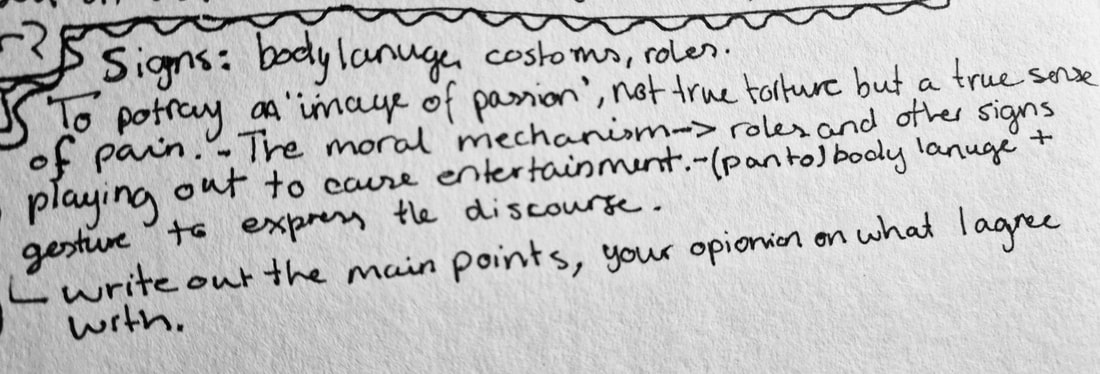 Signs: body lanuge, costoms, roles.
To potray an 'image of passion', not true torture but a true sense
of pain. - The moral mechanism -> roles and other signs
playing out to cause entertainment. - (panto) body lanuge +
gesture to express the discourse.
write out the main points, your opionion on what I agree
with.